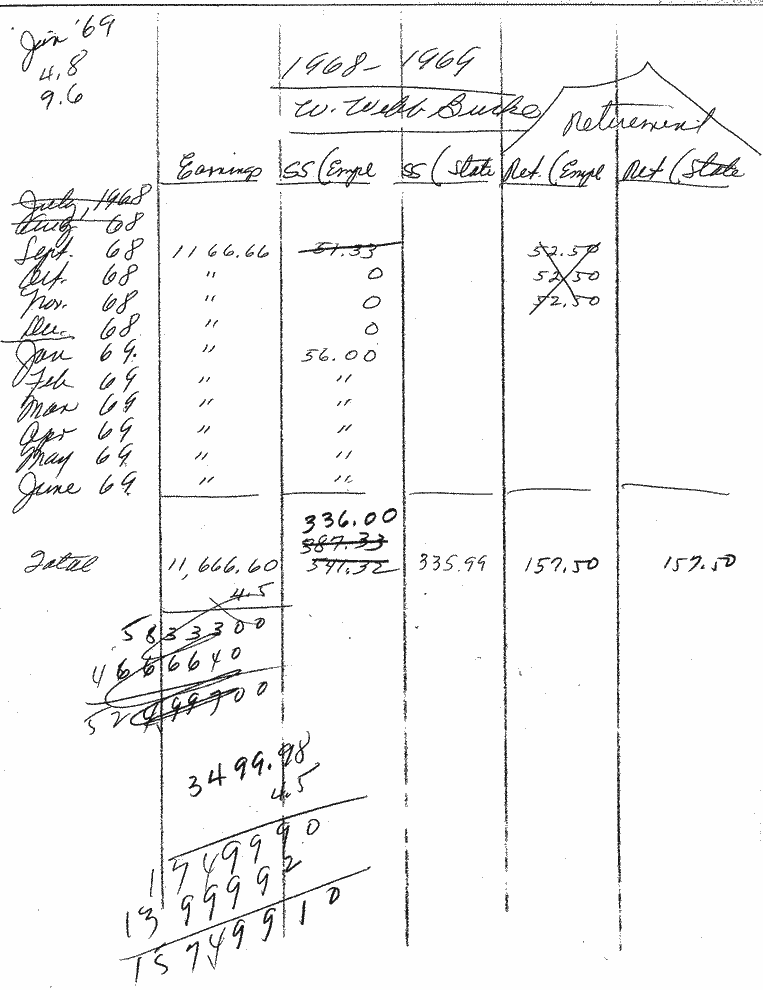 Jan '69
4.8
9.6
1968- 1969
W. Webb Burke
Retirement
Earnings SS (Empl SS (State Ret. (Empl Ret (State
July, 1968
Aug 68
Sept. 68 1166.66 51.33 52.50
Oct. 68 " 0 52.50
Nov. 68 " 0 52.50
Dec. 68 " 0
Jan 69. " 56.00
Feb 69 " "
Mar 69 " "
Apr 69 " "
May 69 " "
June 69. " "
336.00
387.33
Total 11,666.60 541.32 335.99 157.50 157.50
4.5
5833300
4666640
3499.98
4.5
1749990
1399992
15749910